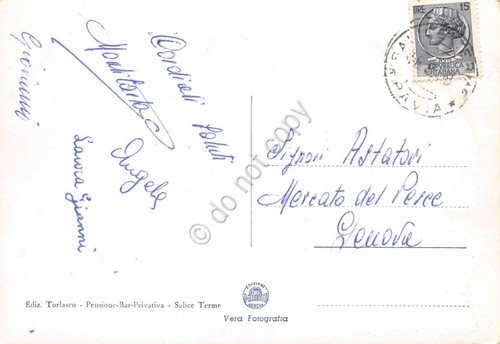 Cordiali Saluti
Angela
Laura Gianni
Signori Astatori
Mercato del Pesce
Genova
LIRE 15
PAVIA
© do not copy
Ediz. Torlasco - Pensione-Bar-Privativa - Salice Terme
Vera Fotografia